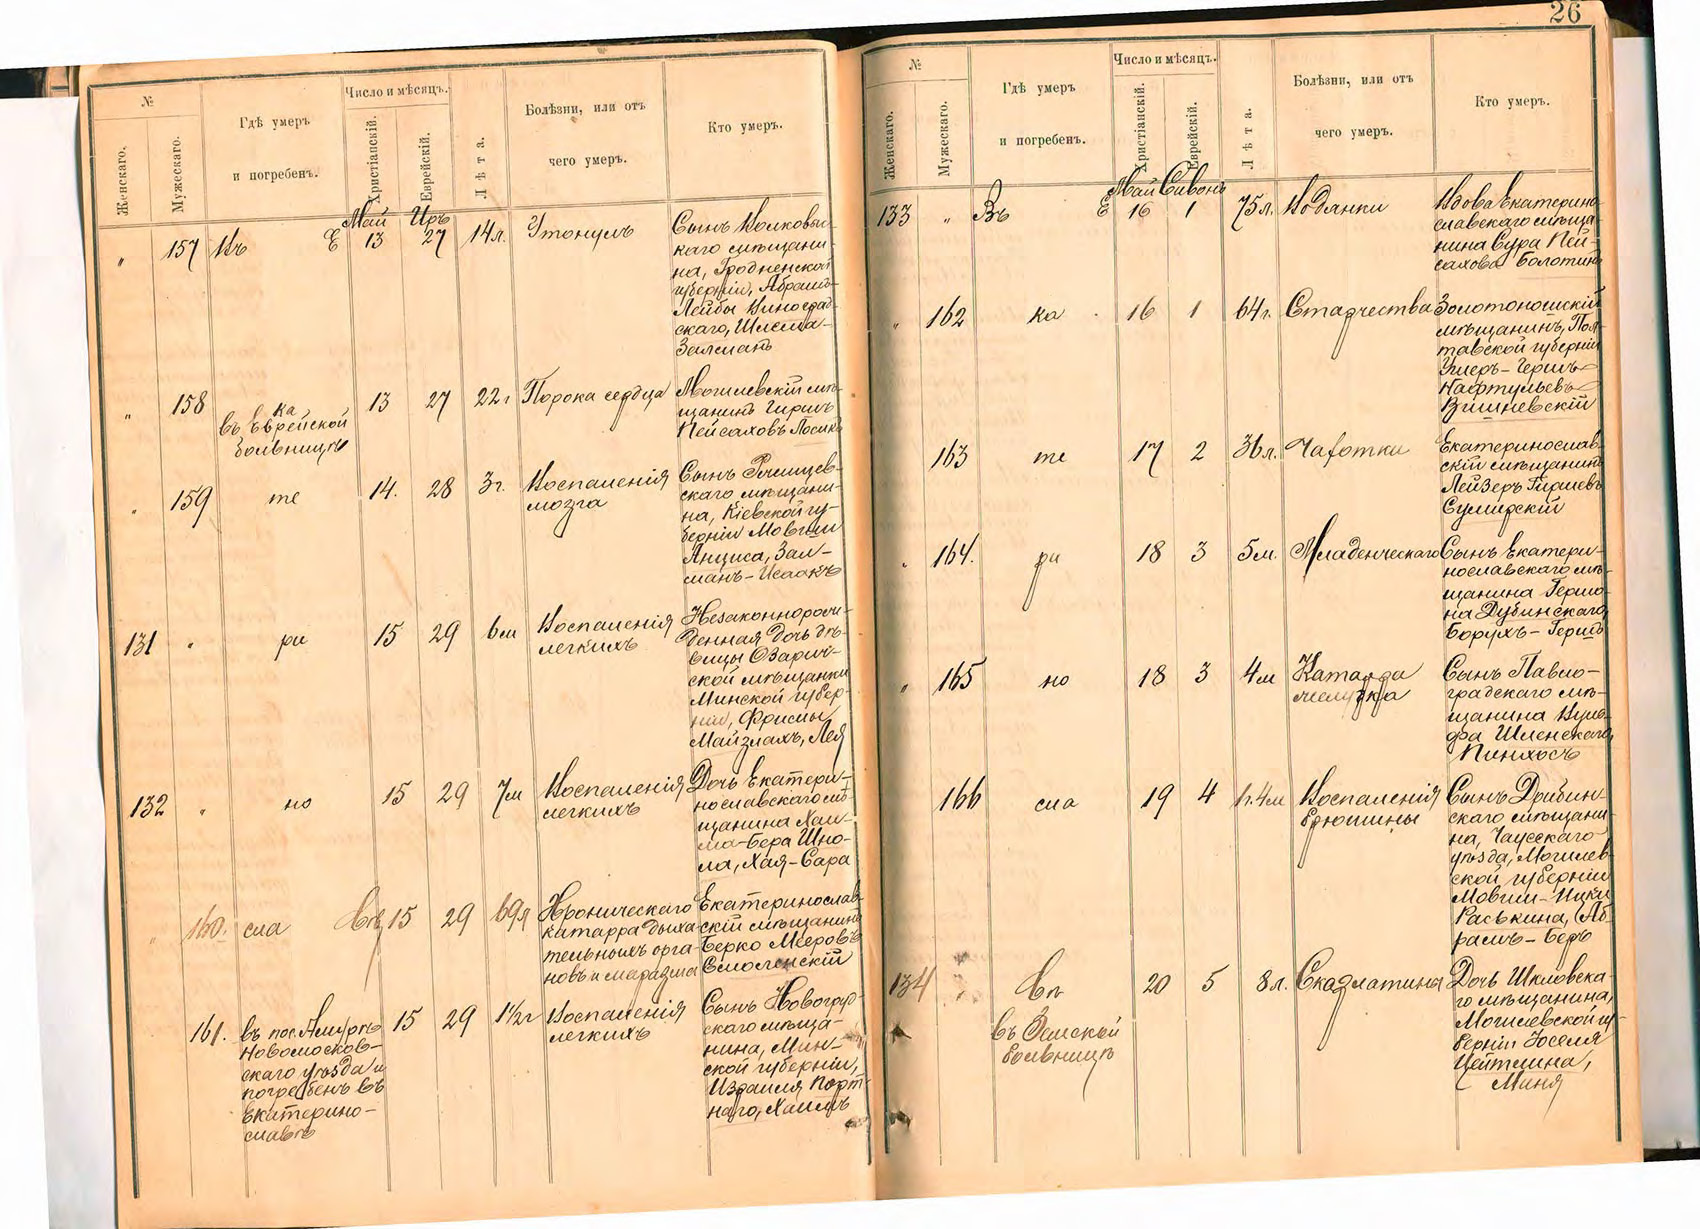 26
№
Женскаго.
Мужескаго.
Гдѣ умеръ
и погребенъ.
Число и мѣсяцъ.
Христіанскій.
Еврейскій.
Лѣта.
Болѣзни, или отъ
чего умеръ.
Кто умеръ.
Май Iіръ
" 157 Въ Е 13 27 14 л. Утонулъ
Сынъ Волковыс-
каго мѣщани-
на, Гродненской
губерніи, Абрамъ-
Лейбы Виноград-
скаго, Шлема-
Залманъ
" 158 ка
въ Еврейской
больницѣ
13 27 22 г Порока сердца
Могилевскій мѣ-
щанинъ Гиршъ
Пейсаховъ
" 159 те 14. 28 3 г. Воспаленія
мозга
Сынъ Рѣчицев-
скаго мѣщани-
на, Кіевской гу-
берніи Мовши
Анциса, Зал-
манъ-Исаакъ
131 " ри 15 29 6 м Воспаленія
легкихъ
Незаконнорож-
денная дочь дѣ-
вицы Озарич-
ской мѣщанки
Минской губер-
ніи, Фрумы
Майзлахъ, Лея
132 " но 15 29 7 м Воспаленія
легкихъ
Дочь Екатери-
нославскаго мѣ-
щанина Хаи-
ма-Бера Шко-
ла, Хая-Сара
" 160. сла вѣ 15 29 69 л Хроническаго
катарра дыха-
тельныхъ орга-
новъ и маразма
Екатеринослав-
скій мѣщанинъ
Берко Мееровъ
Смоленскій
161. въ пос. Амурѣ
Новомосков-
скаго уѣзда и
погребенъ въ
Екатерино-
славѣ
15 29 1½ г Воспаленія
легкихъ
Сынъ Новогруд-
скаго мѣща-
нина, Мин-
ской губерніи,
Израиля Порт-
наго, Хаимъ
№
Женскаго.
Мужескаго.
Гдѣ умеръ
и погребенъ.
Число и мѣсяцъ.
Христіанскій.
Еврейскій.
Лѣта.
Болѣзни, или отъ
чего умеръ.
Кто умеръ.
Май Сивонъ
133 " Въ Е 16 1 75 л. Водянки
Вдова Екатерино
славскаго мѣща-
нина Сура Пей-
сахова Болотинъ
" 162 ка 16 1 64 г. Старчества
Золотоношскій
мѣщанинъ, Пол-
тавской губерніи
Ушеръ-Гершъ
Нафтульевъ
Вишневскій
163 те 17 2 36 л. Чахотки
Екатеринослав-
скій мѣщанинъ
Лейзеръ Гиршевъ
Сумирскій
" 164. ри 18 3 5 м. Младенческаго
Сынъ Екатери-
нославскаго мѣ-
щанина Гершо-
на Дубинскаго
Борухъ-Гершъ
" 165 но 18 3 4 м Катарра
желудка
Сынъ Павло-
градскаго мѣ-
щанина Вуль-
фа Шленскаго,
Пинхосъ
166 сла 19 4 1 г. 4 м Воспаленія
брюшины
Сынъ Дрибин-
скаго мѣщани-
на, Чаусскаго
уѣзда, Могилев-
ской губерніи
Мовши-Ицки
Раськина, Аб-
рамъ-Беръ
134 " вѣ
въ Земской
больницѣ
20 5 8 л. Скарлатина
Дочь Шкловска-
го мѣщанина,
Могилевской гу-
берніи Іоселя
Цейтлина,
Миня